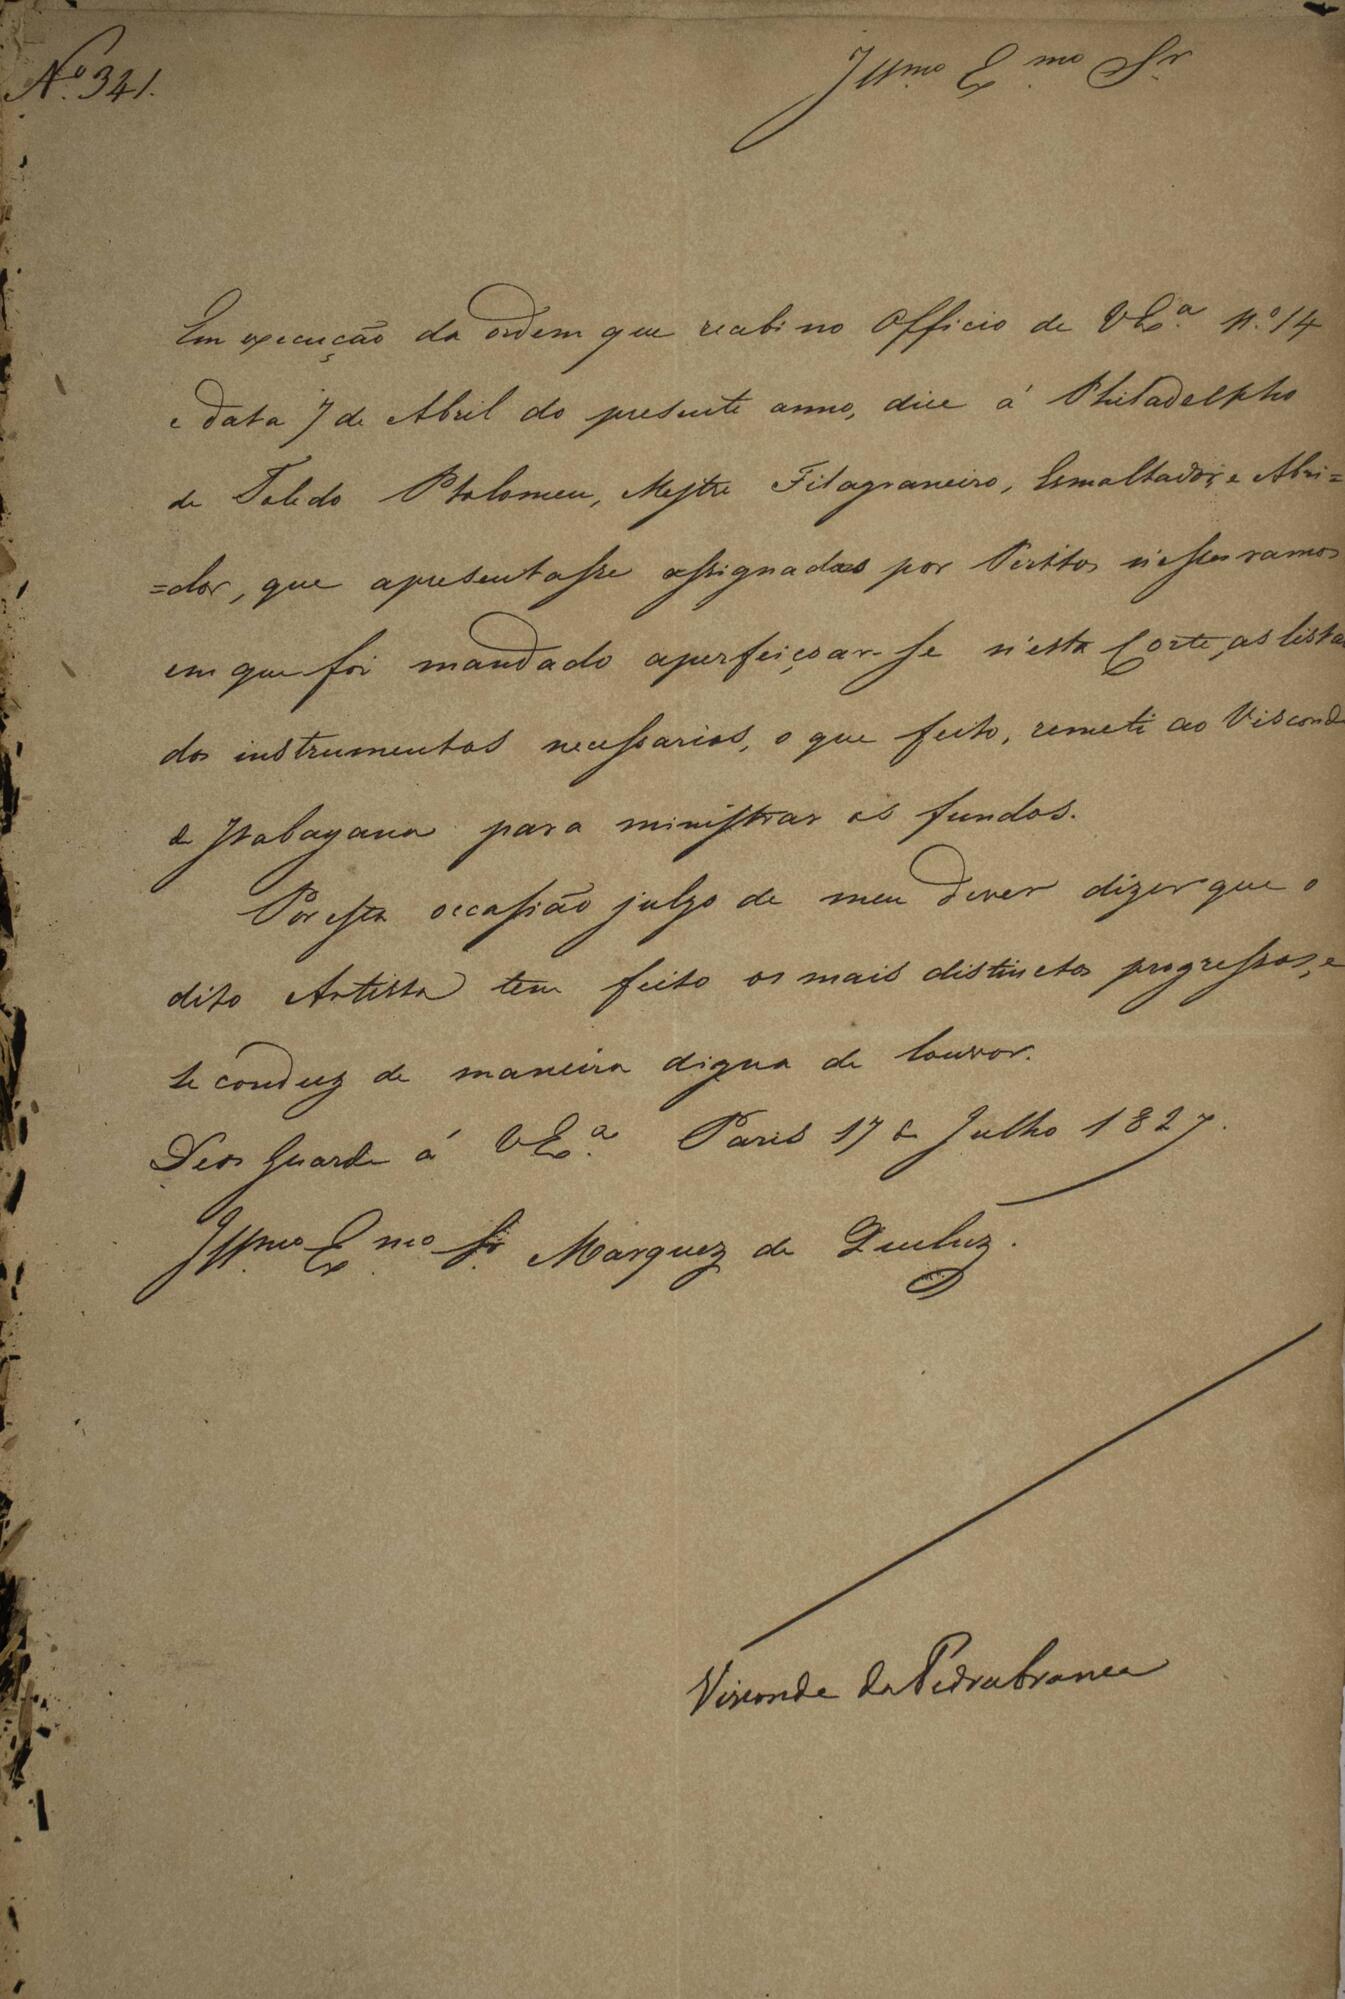 Nº 341.
Illmo Exmo Sr
Em execução da ordem que recebi no Officio de V Exª nº 14
e data 7 de Abril do presente anno, dice á Philadelpho
de Toledo Ptolomeu, Mestre Filagraneiro, Esmaltador, e Abri=
=dor, que apresentasse assignadas por Peritos n'esses ramos
em que foi mandado aperfeiçoar-se n'esta Corte, as listas
dos instrumentos necessarios, o que feito, remeti ao Visconde
de Itabayana para ministrar os fundos.
Por esta occasião julgo de meu dever dizer que o
dito Artista tem feito os mais distinctos progressos, e
se conduz de maneira digna de louvor.
Deos Guarde á V Exª Paris 17 de Julho 1827.
Illmo Exmo Sr Marquez de Queluz.
Visconde da Pedra branca